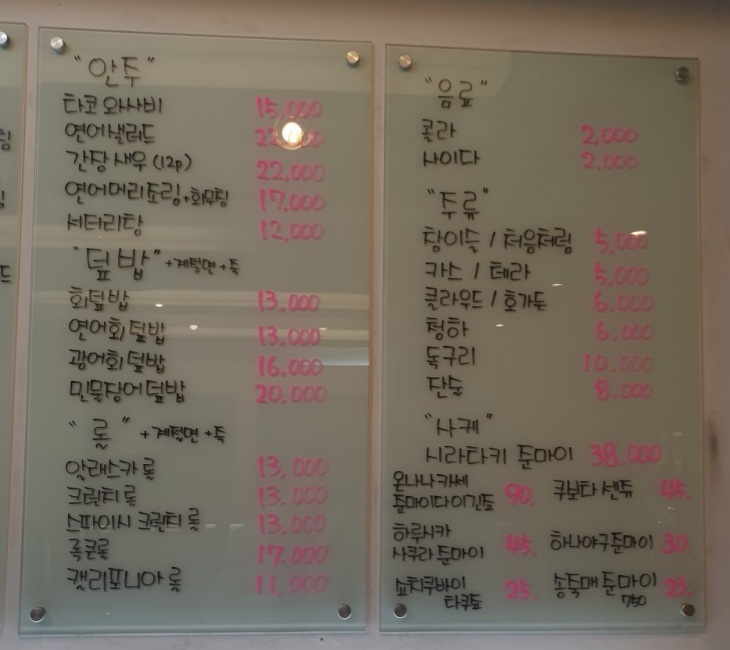 "안주"
타코 와사비 15,000
연어샐러드
간장새우 (12p) 22,000
연어머리조림+회무침 17,000
서더리탕 12,000
"덮밥" +계절면+죽
회덮밥 13,000
연어회덮밥 13,000
광어회덮밥 16,000
민물장어덮밥 20,000
"롤" +계절면+죽
알래스카롤 13,000
크런티롤 13,000
스파이시 크런티롤 13,000
폭콘롤 17,000
캘리포니아롤 11,000
"음료"
콜라 2,000
사이다 2,000
"주류"
참이슬 / 처음처럼 5,000
카스 / 테라 5,000
클라우드 / 호가든 6,000
청하 6,000
독구리 10,000
단술 8,000
"사케"
시라타키 준마이 38,000
온나나카세
준마이다이긴죠 90,
쿠보타센쥬 45,
하루시카
사쿠라준마이 45,
하나야구준마이 30,
쇼치쿠바이
타쿠죠 25,
송죽매준마이 23,
750